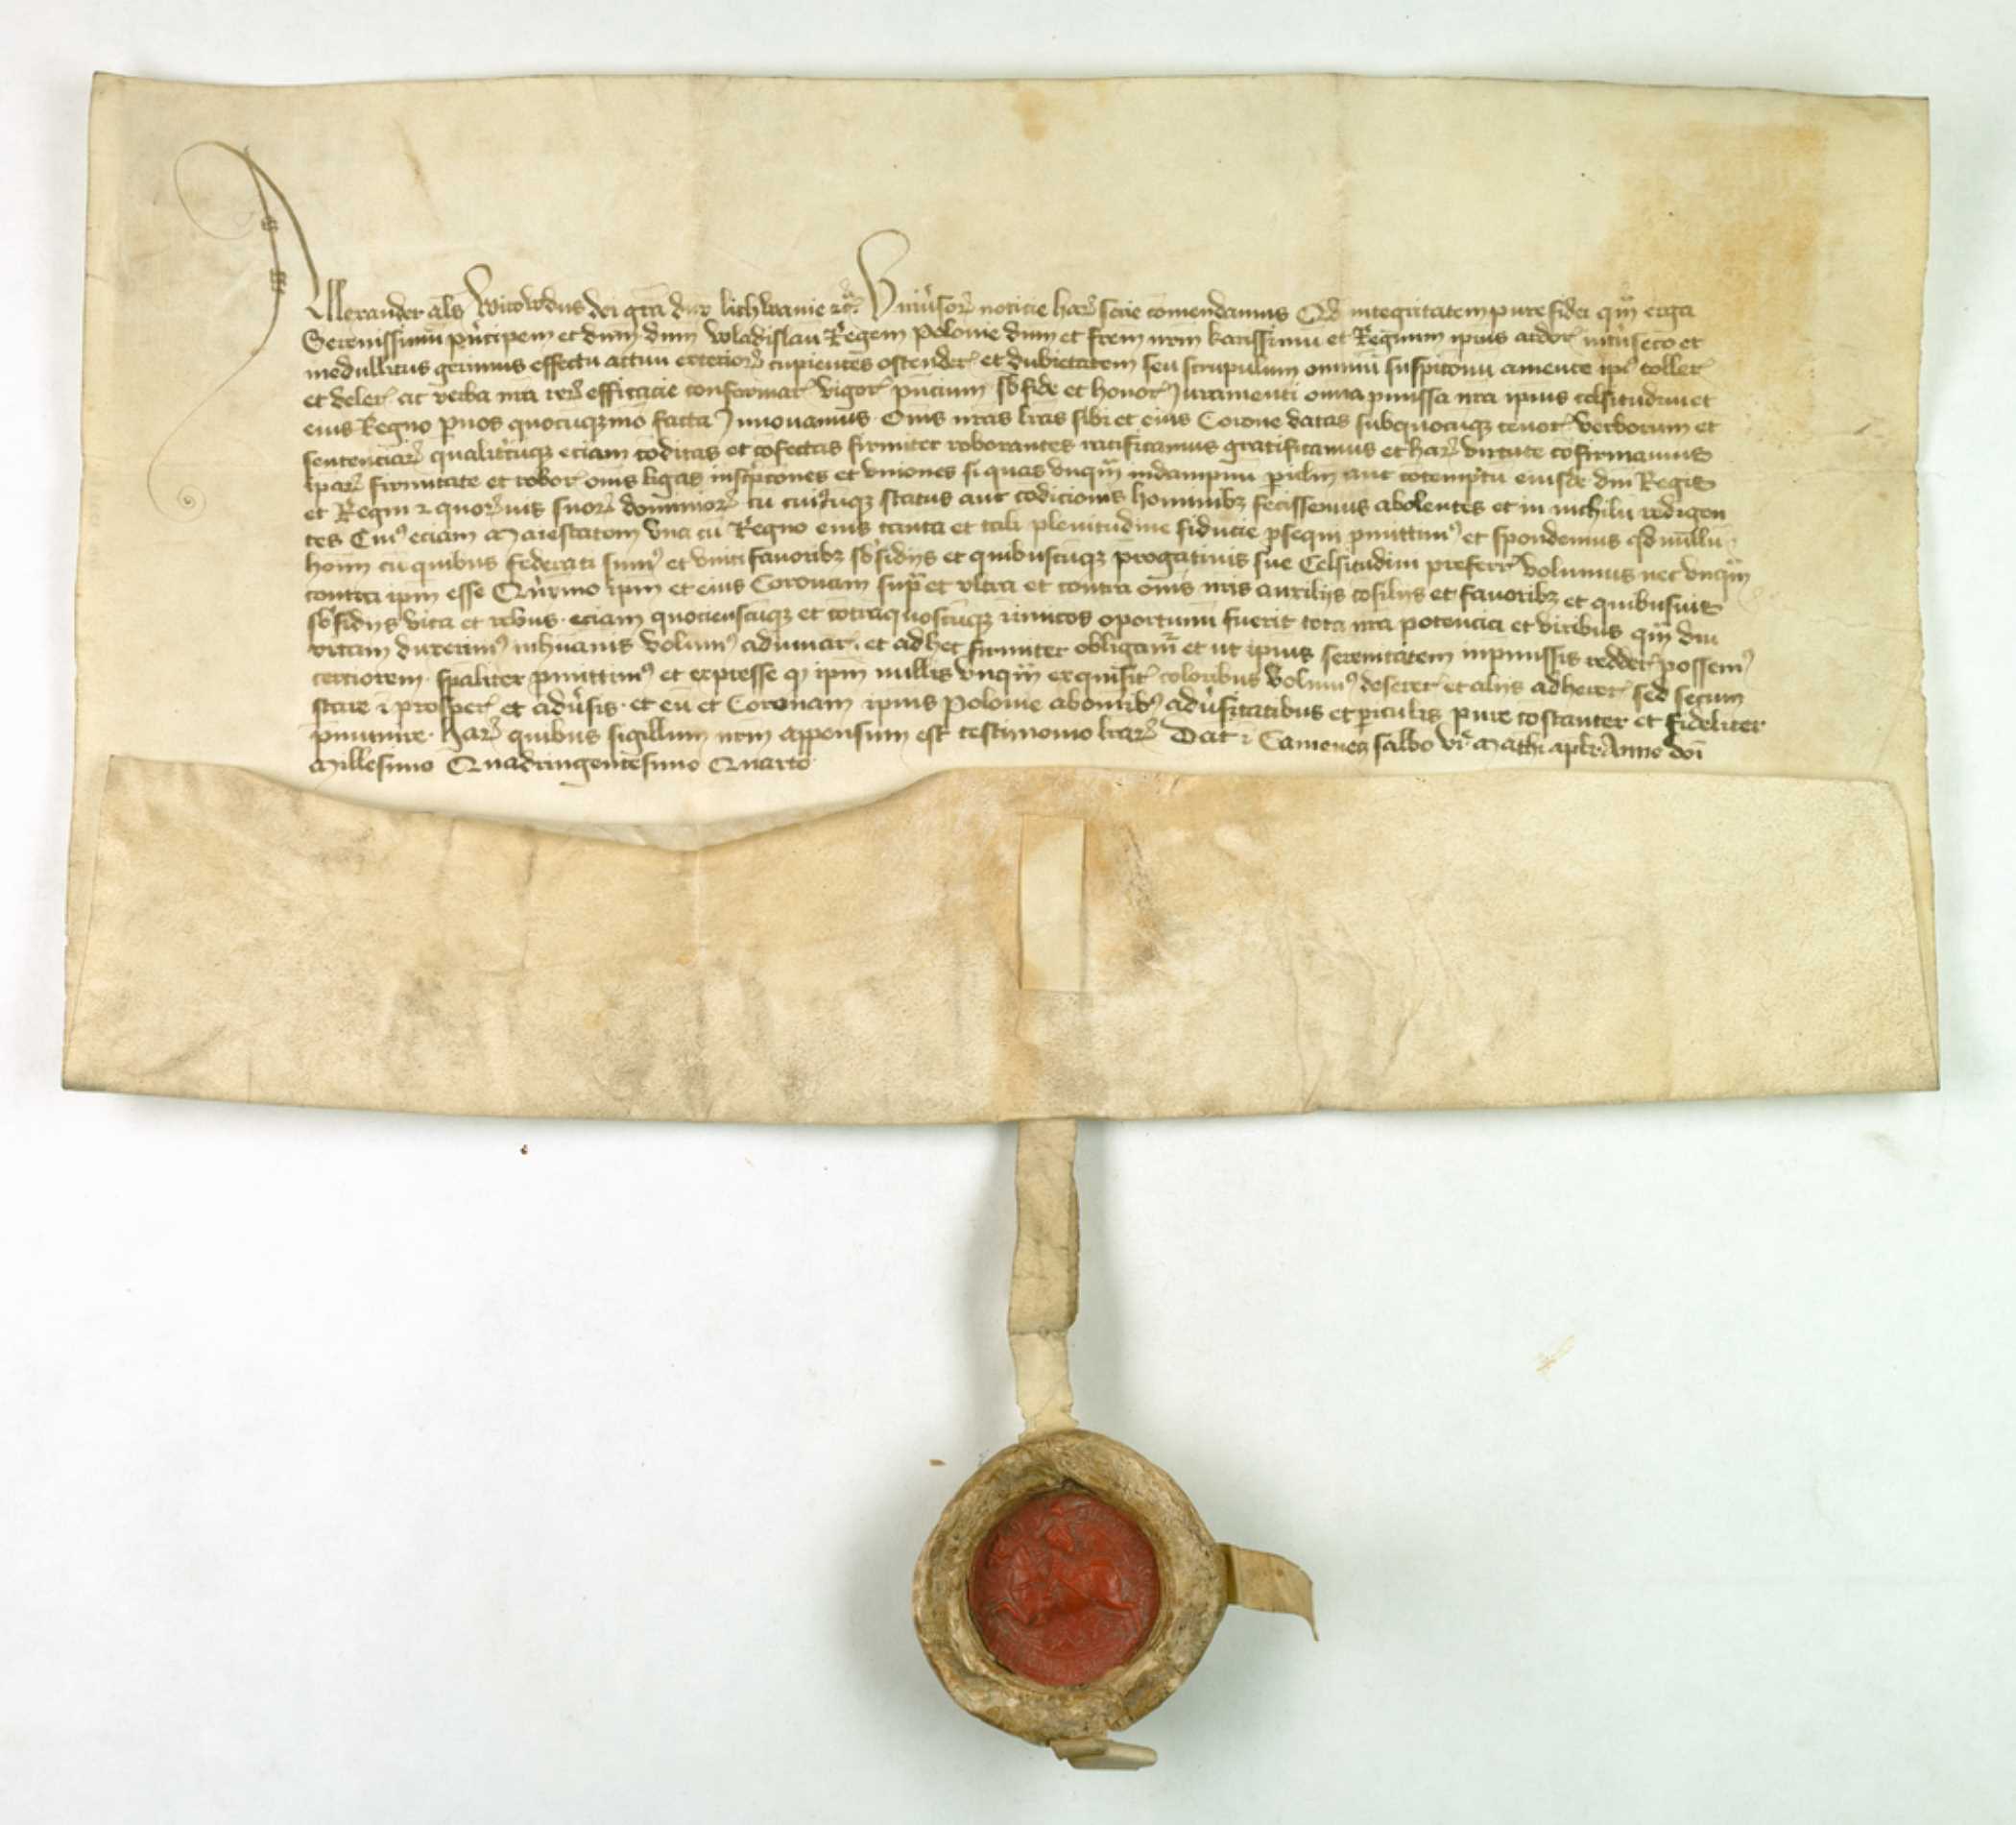 Allexander als Witowdus dei gra dux lithwanie zc. Universor noticie har serie comendamus Qd integritatem pure fidei qm erga
Serenissimu principem et dnm dnm Wladislau Regem Polonie dnm et frem nrm karissimu et Regnum ipius ardor intrinseco et
medullitus gerimus effectu actuu exterior cupientes ostender et dubietatem seu scrupulum omniu suspitonu amente ipi toller
et deler ac verba nra rer efficacie conformar vigor pncium sb fide et honor Juramenti omnia pmissa nra ipius celsitudini et
eius Regno p nos quocuqz mo facta Innovamus Omis nras lras sibi et eius Corone datas subquocuqz tenor verborum et
sentenciar qualitcuqz eciam coditas et cofectas firmiter roborantes ratificamus gratificamus et har virtute cofirmamus
ipar firmitate et robor omis ligas inscpcones et uniones si quas unqm indampnu piudm aut cotemptu eiusde dni Regis
et Regni z quorvis suor dominior cu cuiucuqz status aut codicionis hominibz fecissemus abolentes et in nichilu redigen
tes Cui eciam Maiestatem una cu Regno eius tanta et tali plenitudine fiducie psequi pmittim et spondemus qd nullu
hoim cu quibus federati sum et uniti favoribz sbsidiis et quibuscuqz progatiuis sue Celsitudini preferr volumus nec unqm
contra ipm esse Quimo ipm et eius Coronam supra et ultra et contra omis nris auxiliis cosiliis et favoribz et quibusvis
sbsidiis vita et rebus eciam quocienscuqz et cotra quoscuqz inimicos oportunu fuerit tota nra potencia et viribus qm diu
vitam duxerim inhuanis volum adiuvar et ad hec firmiter obligam et ut ipius serenitatem inpmissis redder possem
cerciorem spaliter pmittim et expresse q ipm nullis unqm exquisit coloribus volum deserer et aliis adherer sed secum
stare i prosper et advsis et eu et Coronam ipius Polonie ab omib advsitatibus et piculis pure costanter et fideliter
pmunire har quibus sigillum nrm appensum est testimonio lrar Dat i Camenecz sabbo vi Mathi apli Anno doi
Millesimo Quadringentesimo Quarto